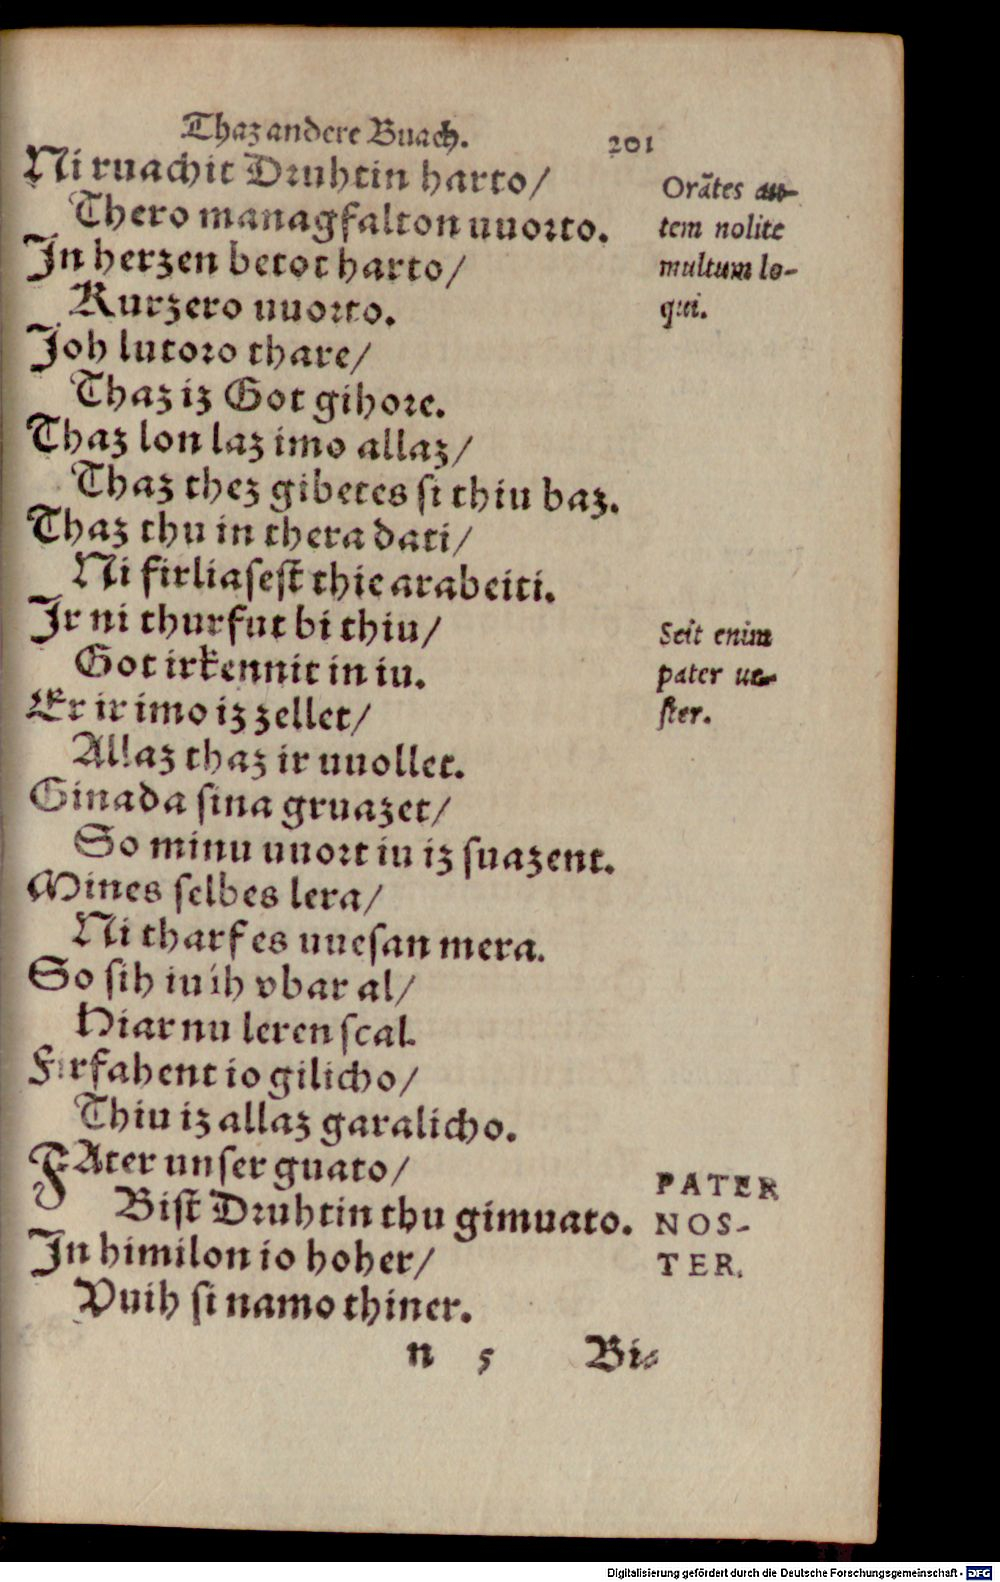 Thaz andere Buach. 201
Ni ruachit Druhtin harto/
Thero managfalton uuorto.
In herzen betot harto/
Kurzero uuorto.
Joh lutoro thare/
Thaz iz Got gihore.
Thaz lon laz imo allaz/
Thaz thez gibetes si thiu baz.
Thaz thu in thera dati/
Ni firliasest thie arabeiti.
Ir ni thurfut bi thiu/
Got irkennit in iu.
Er ir imo iz zellet/
Allaz thaz ir uuollet.
Ginada sina gruazet/
So minu uuort iu iz suazent.
Mines selbes lera/
Ni tharf es uuesan mera.
So sih iu ih vbar al/
Hiar nu leren scal.
Firfahent io gilicho/
Thiu iz allaz garalicho.
FAter unser guato/
Bist Druhtin thu gimuato.
In himilon io hoher/
Vuih si namo thiner.
n 5 Bi⸗
Orãtes au-
tem nolite
multum lo-
qui.
Scit enim
pater ue-
ster.
PATER
NOS-
TER.
Digitalisierung gefördert durch die Deutsche Forschungsgemeinschaft - DFG